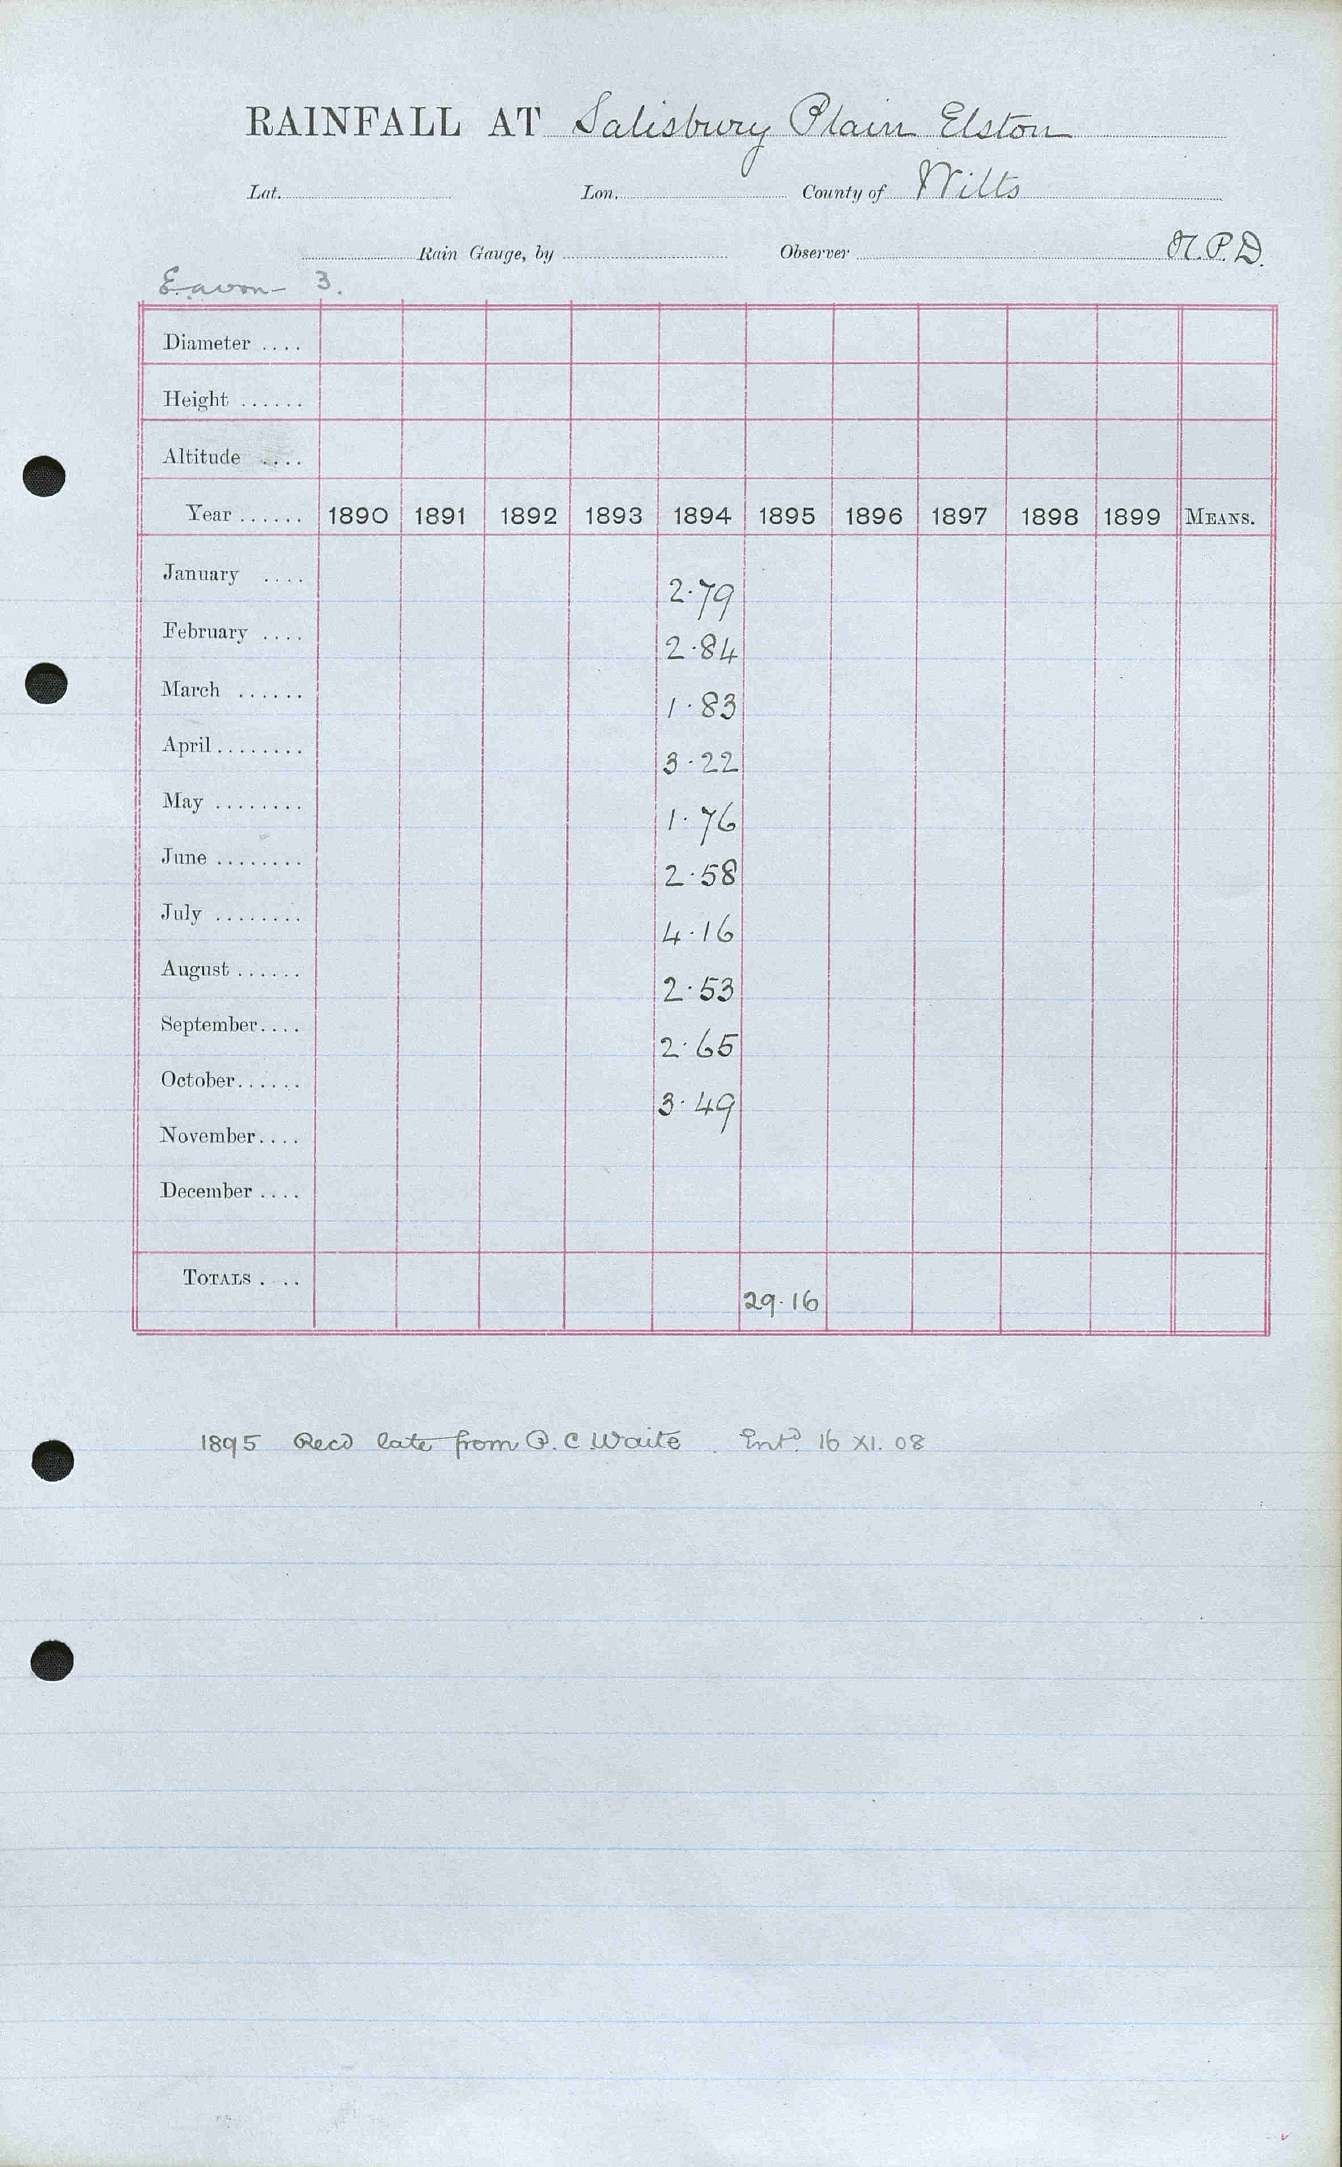 RAINFALL AT Salisbury Plain Elston
Lat. Lon. County of Wilts
Rain Gauge, by Observer N.P.D.
E. avon 3.
Diameter ....
Height ......
Altitude ....
Year ...... 1890 1891 1892 1893 1894 1895 1896 1897 1898 1899 MEANS.
January .... 2.79
February .... 2.84
March ...... 1.83
April ........ 3.22
May ........ 1.76
June ........ 2.58
July ........ 4.16
August ...... 2.53
September .... 2.65
October ...... 3.49
November ....
December ....
TOTALS .... 29.16
1895 Recd late from P.C. Waite. Entd. 16 XI. 08